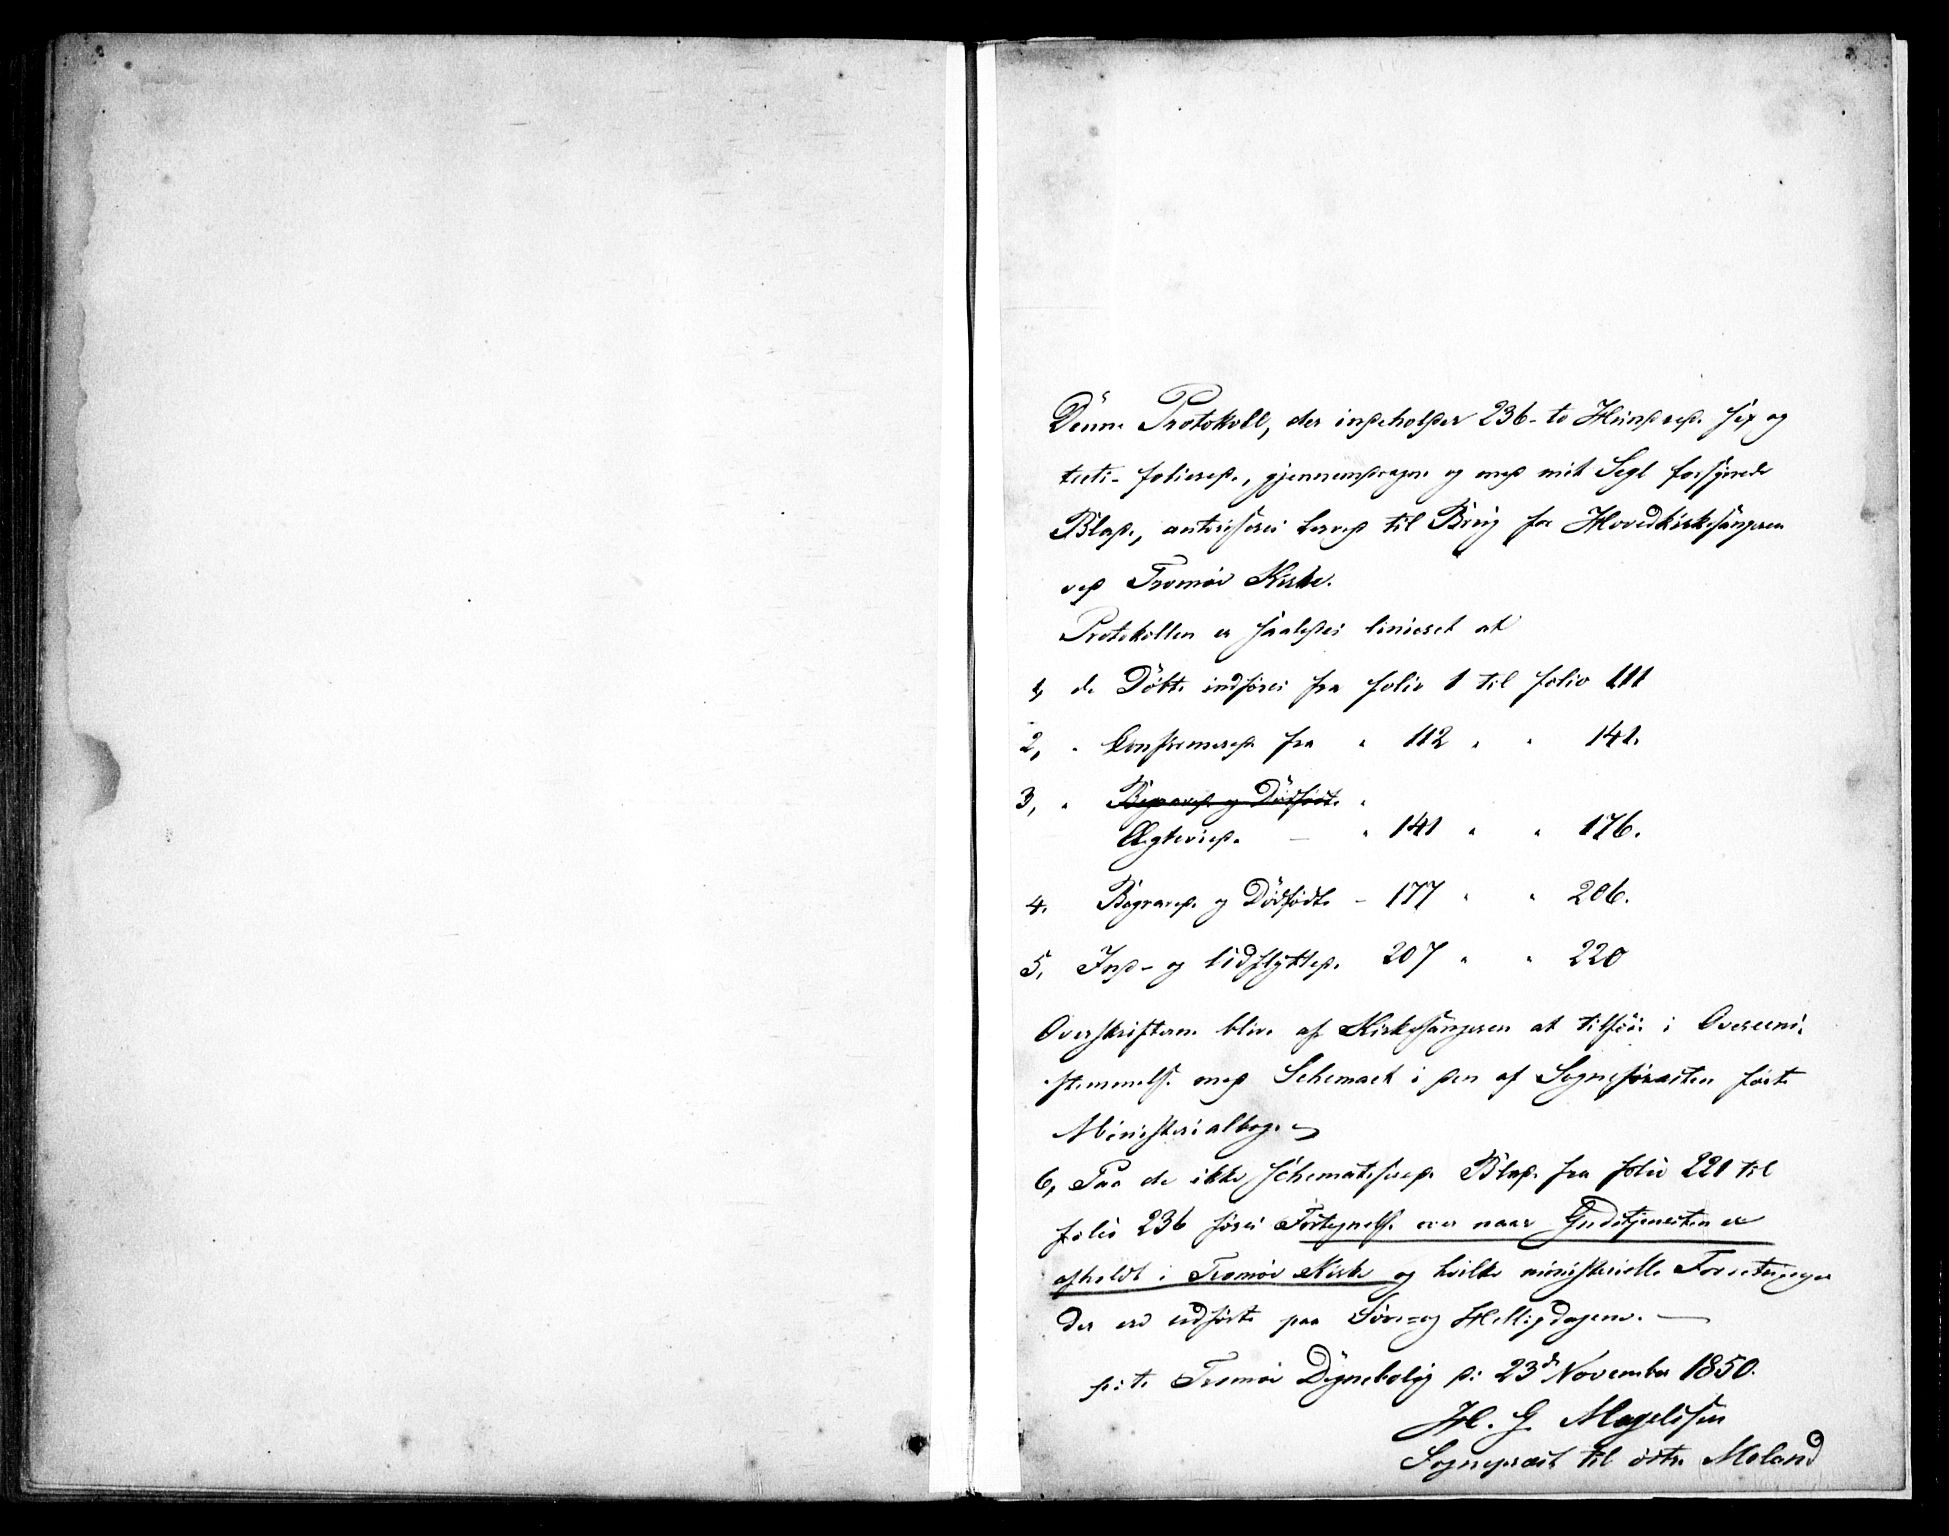 Denne Protokoll, der indeholder 236- to Hundrede sex og
treti- folierede, gjennemdragne og med mit Segl forsynede
Blade, autoriseres herved til Brug for Hovedkirkesangeren
ved Tromøe Kirke.
Protokollen er saaledes linieret at
1, de Døbte indføres fra folio 1 til folio 111
2, " Confirmerede fra " 112 " " 141.
3, " Begravede og Dødfødte "
Ægteviede — " 141 " " 176.
4. Begravede og Dødfødte - 177 " " 206.
5, Ind- og Udflyttede 207 " " 220
Overskrifterne blive af Kirkesangeren at tilføie i Overeens-
stemmelse med Schemaet i den af Sognepræsten førte
Ministerialbog.
6, Paa de ikke schematiserede Blade fra folio 221 til
folio 236 føres Fortegnelse over naar Gudstjenesten er
afholdt i Tromøe Kirke og hvilke ministerielle Forretninger
der ere udførte paa Søn- og Helligdagene. —
Tromøe Degnebolig d: 23d November 1850.
H. G Magelssen
Sognepræst til østre Moland